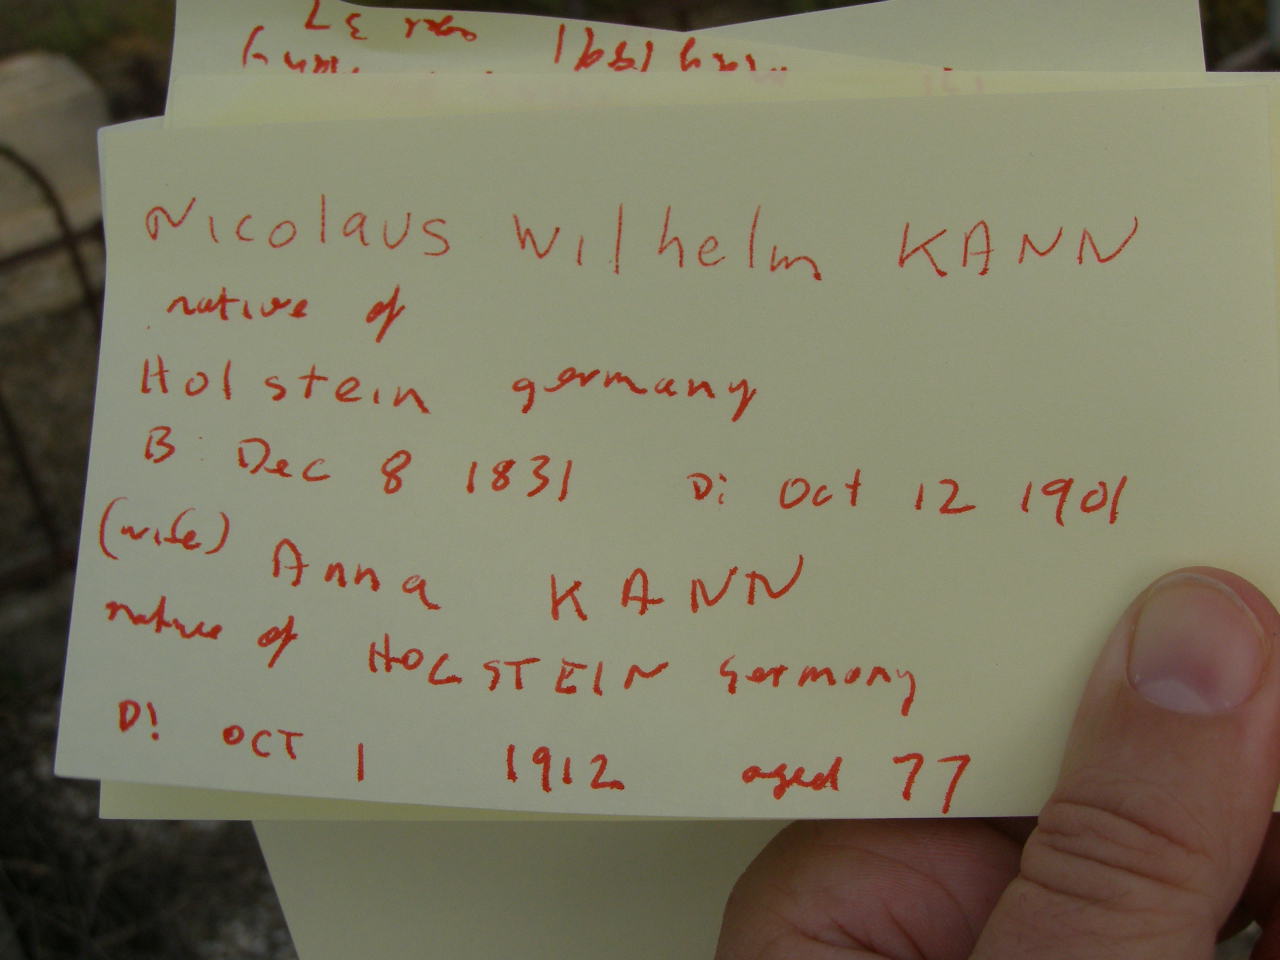 Nicolaus Wilhelm KANN
native of
Holstein germany
B: Dec 8 1831 D: Oct 12 1901
(wife) Anna KANN
native of HOLSTEIN Germany
D: OCT 1 1912 aged 77